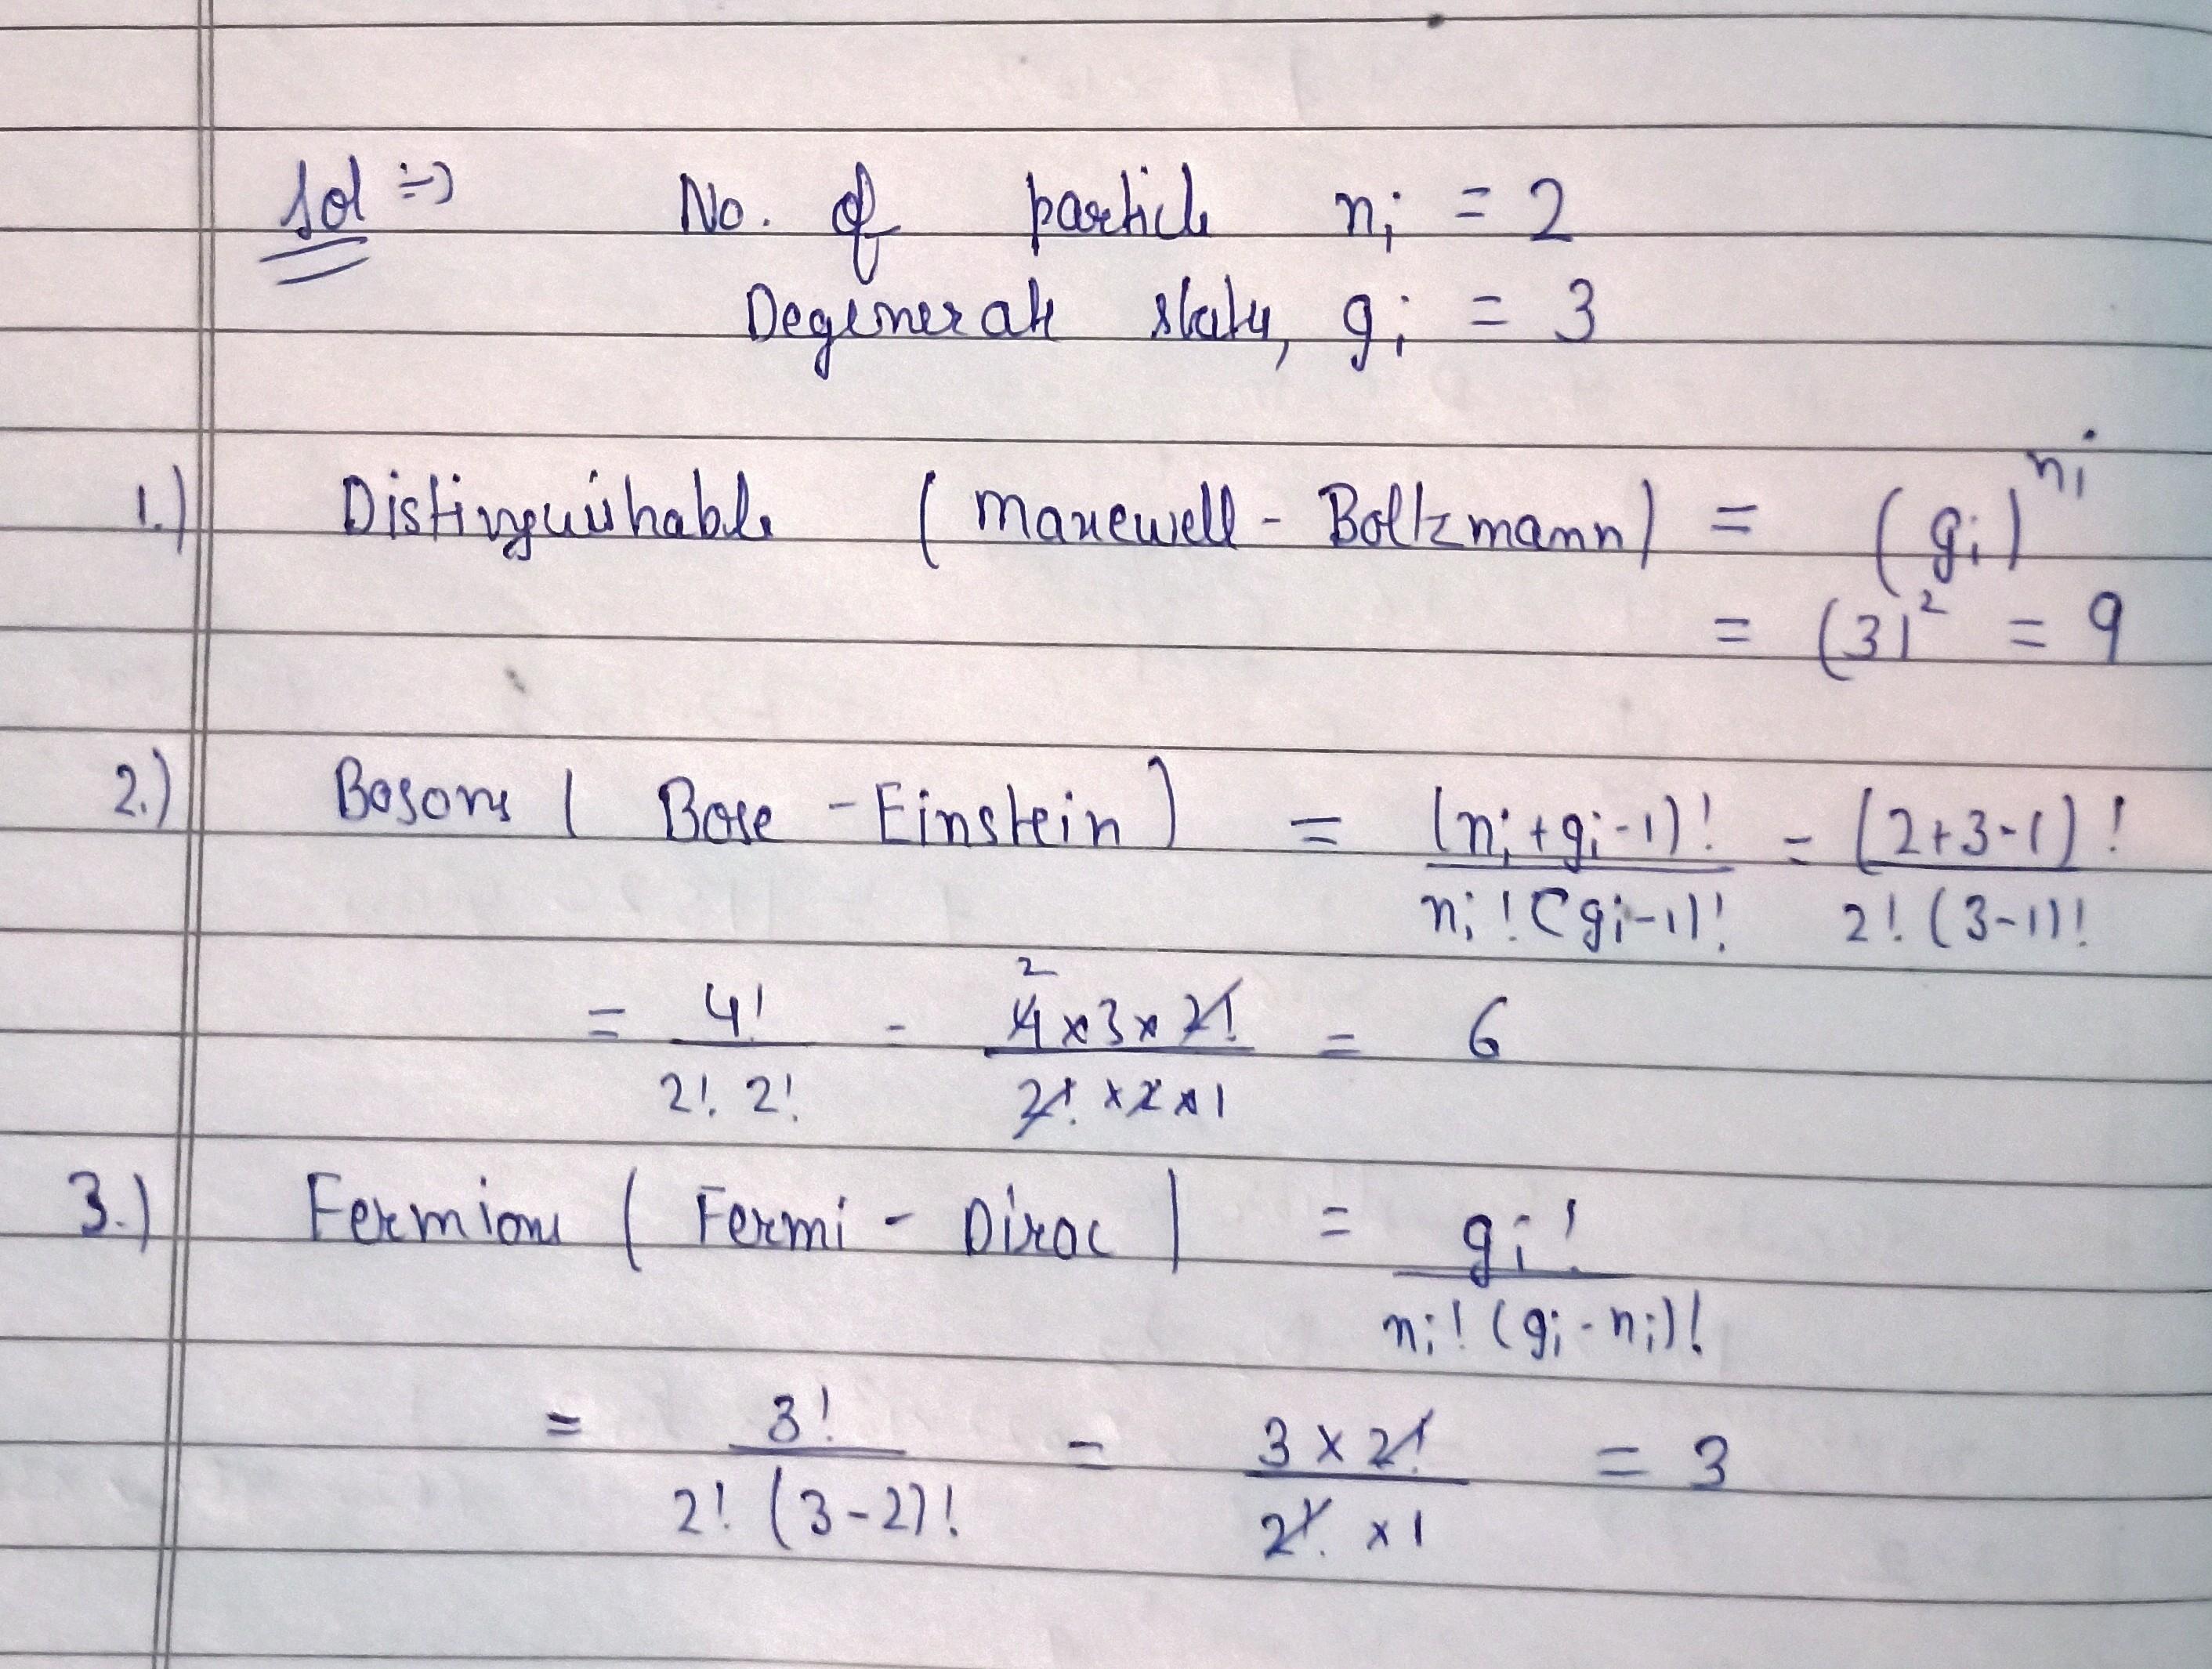 Sol :-> No. of particle nᵢ = 2
Degenerate states, gᵢ = 3
1.) Distinguishable ( Maxewell - Boltzmann) = (gᵢ)^nᵢ
= (3)² = 9
2.) Bosons ( Bose - Einstein) = (nᵢ+gᵢ-1)! / nᵢ!(gᵢ-1)! = (2+3-1)! / 2!(3-1)!
= 4! / 2! 2! = 4x3x2! / 2! x2x1 = 6
3.) Fermions ( Fermi - Dirac ) = gᵢ! / nᵢ!(gᵢ-nᵢ)!
= 3! / 2! (3-2)! = 3 x 2! / 2! x 1 = 3